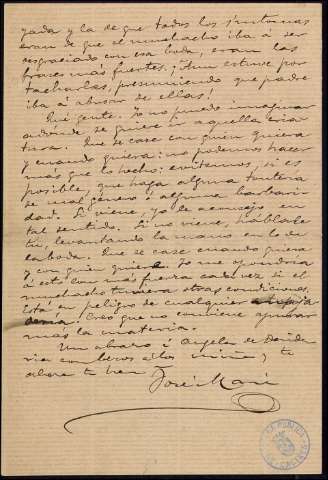 yada y la de que todos los síntomas
eran de que el muchacho iba á ser
desgraciado con esa boda, eran las
frases más fuertes. ¡Aun estuve por
tacharlas, presumiendo que padre
iba á abusar de ellas!
Qué gente. Yo no puedo imaginar
adónde se quiere aquella cria
tura. Que se case con quien quiera
y cuando quiera: no podemos hacer
más que lo hecho: evitemos, si es
posible, que haga alguna tontería
de mal género ó alguna barbari
dad. Si viene, yo le aconsejo en
tal sentido. Si no viene, háblale
tú, levantando la mano en lo de
la boda. Que se case cuando quiera
y con quien quiera. Yo me opondría
á esto con más fuerza cada vez si el
muchacho tuviera otras condiciones.
Está en peligro de cualquier
Creo que no conviene apurar
más la materia.
Un abrazo á Angela de
con besos á los niños, y tú
ahora
José María